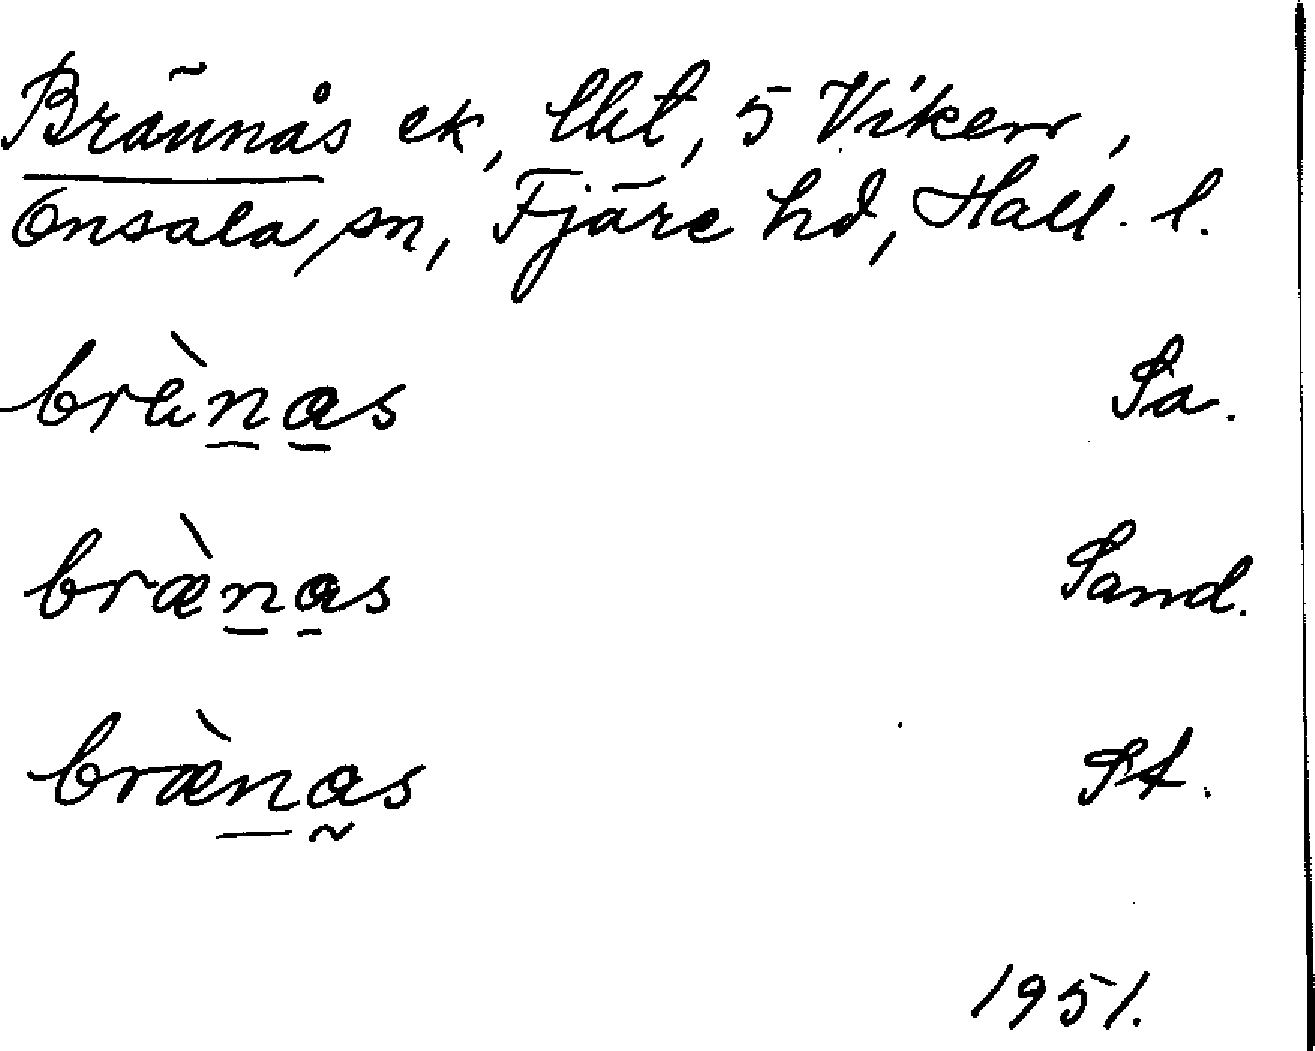 Brännås ek, lht, 5 Viken,
Onsala sn, Fjäre hd, Hall. l.
brὲnas Sa.
brænas Sand.
brænas St.
1951.